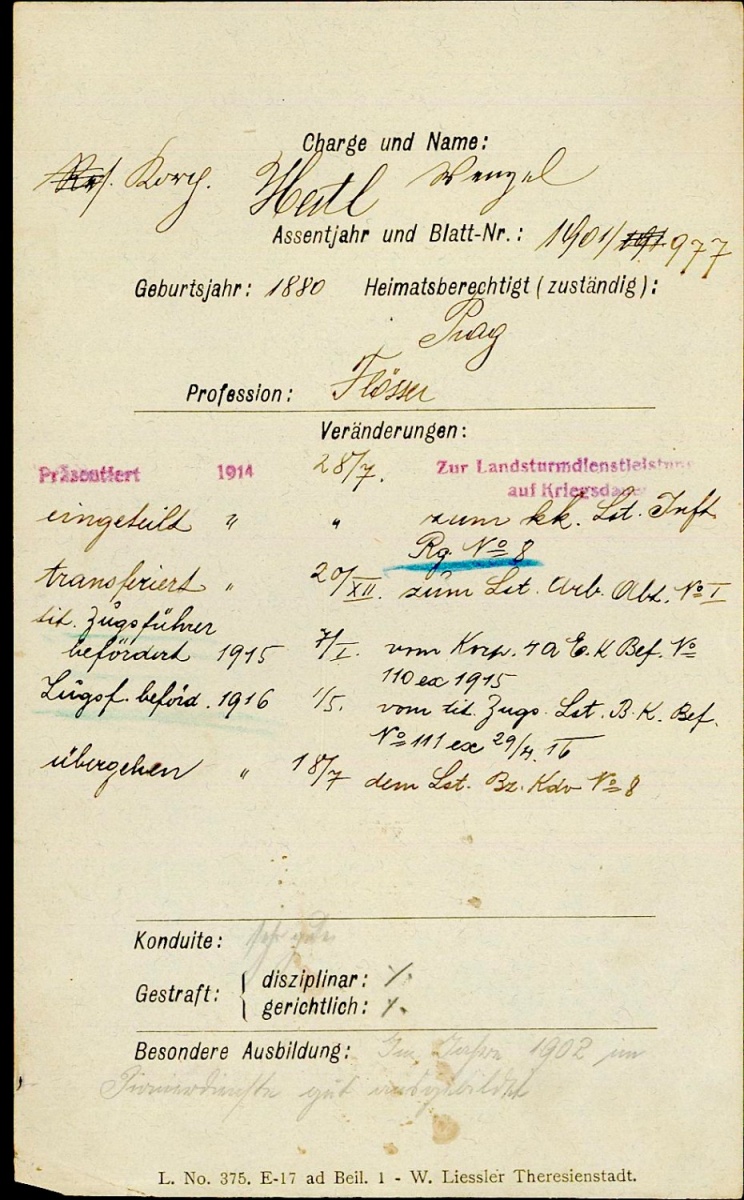 Charge und Name:
Korp. Hertl Wenzel
Assentjahr und Blatt-Nr.: 1901/191 977
Geburtsjahr: 1880 Heimatsberechtigt (zuständig):
Prag
Profession: Flösser
Veränderungen:
Präsentiert 1914 28/7. Zur Landsturmdienstleistung
auf Kriegsdauer
eingeteilt " " zum kk. Lst. Inft
Rg. No 8
transferiert " 20/XII. zum Lst. Arb. Abt. No I
tit. Zugsführer
befördert 1915 7/I. vom Korp. 4a E. K Bef. No
110 ex 1915
Zugsf. beförd. 1916 1/5. vom tit. Zugs. Lst. B. K. Bef.
No 111 ex 29/4. 16
übergehen " 18/7 dem Lst. Bz. Kdo No 8
Konduite: sehr gut
Gestraft: { disziplinar: ·/·
gerichtlich: ·/·
Besondere Ausbildung: Im Jahre 1902 im
Pionierdienste gut ausgebildet
L. No. 375. E-17 ad Beil. 1 - W. Liessler Theresienstadt.